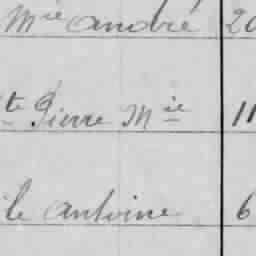 Mie andré 20
te Pierre Mie 11
ile antoine 6